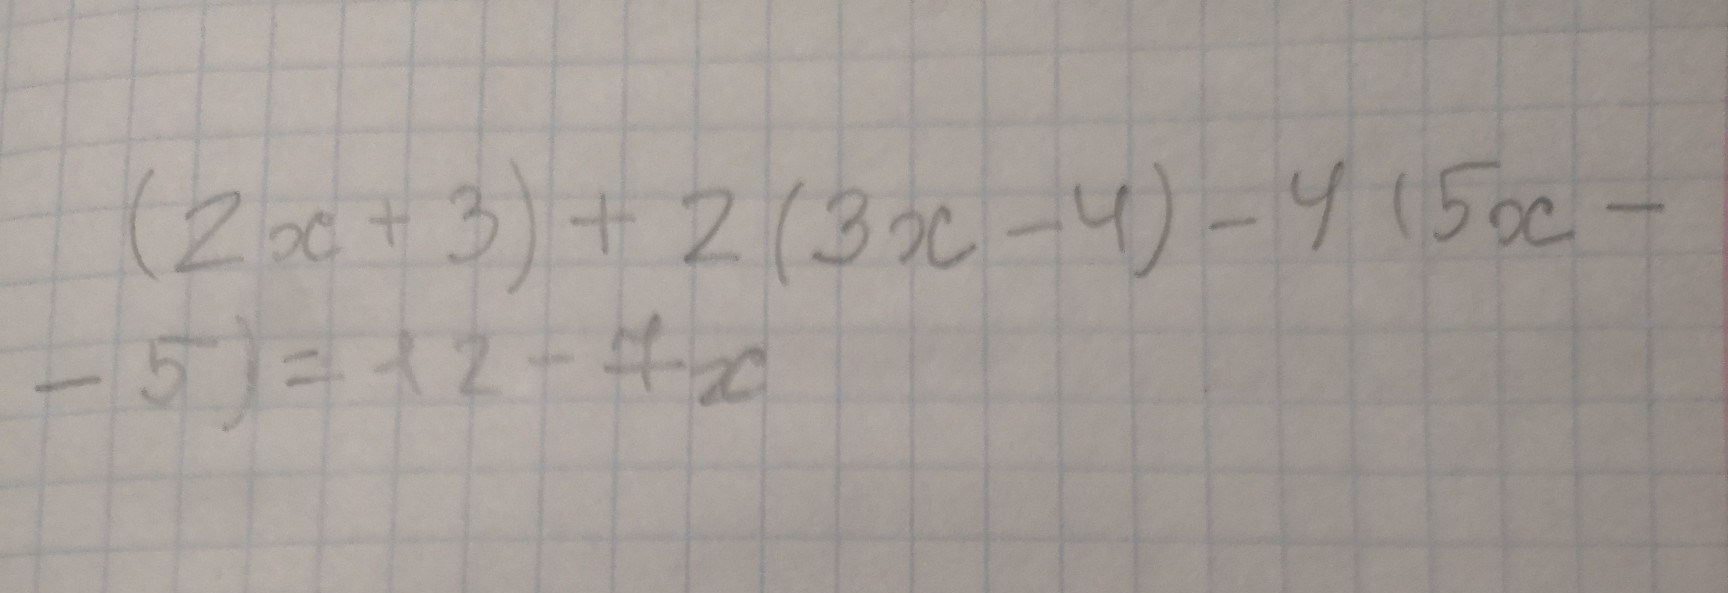 (2x+3)+2(3x-4)-4(5x-
-5)=12-7x